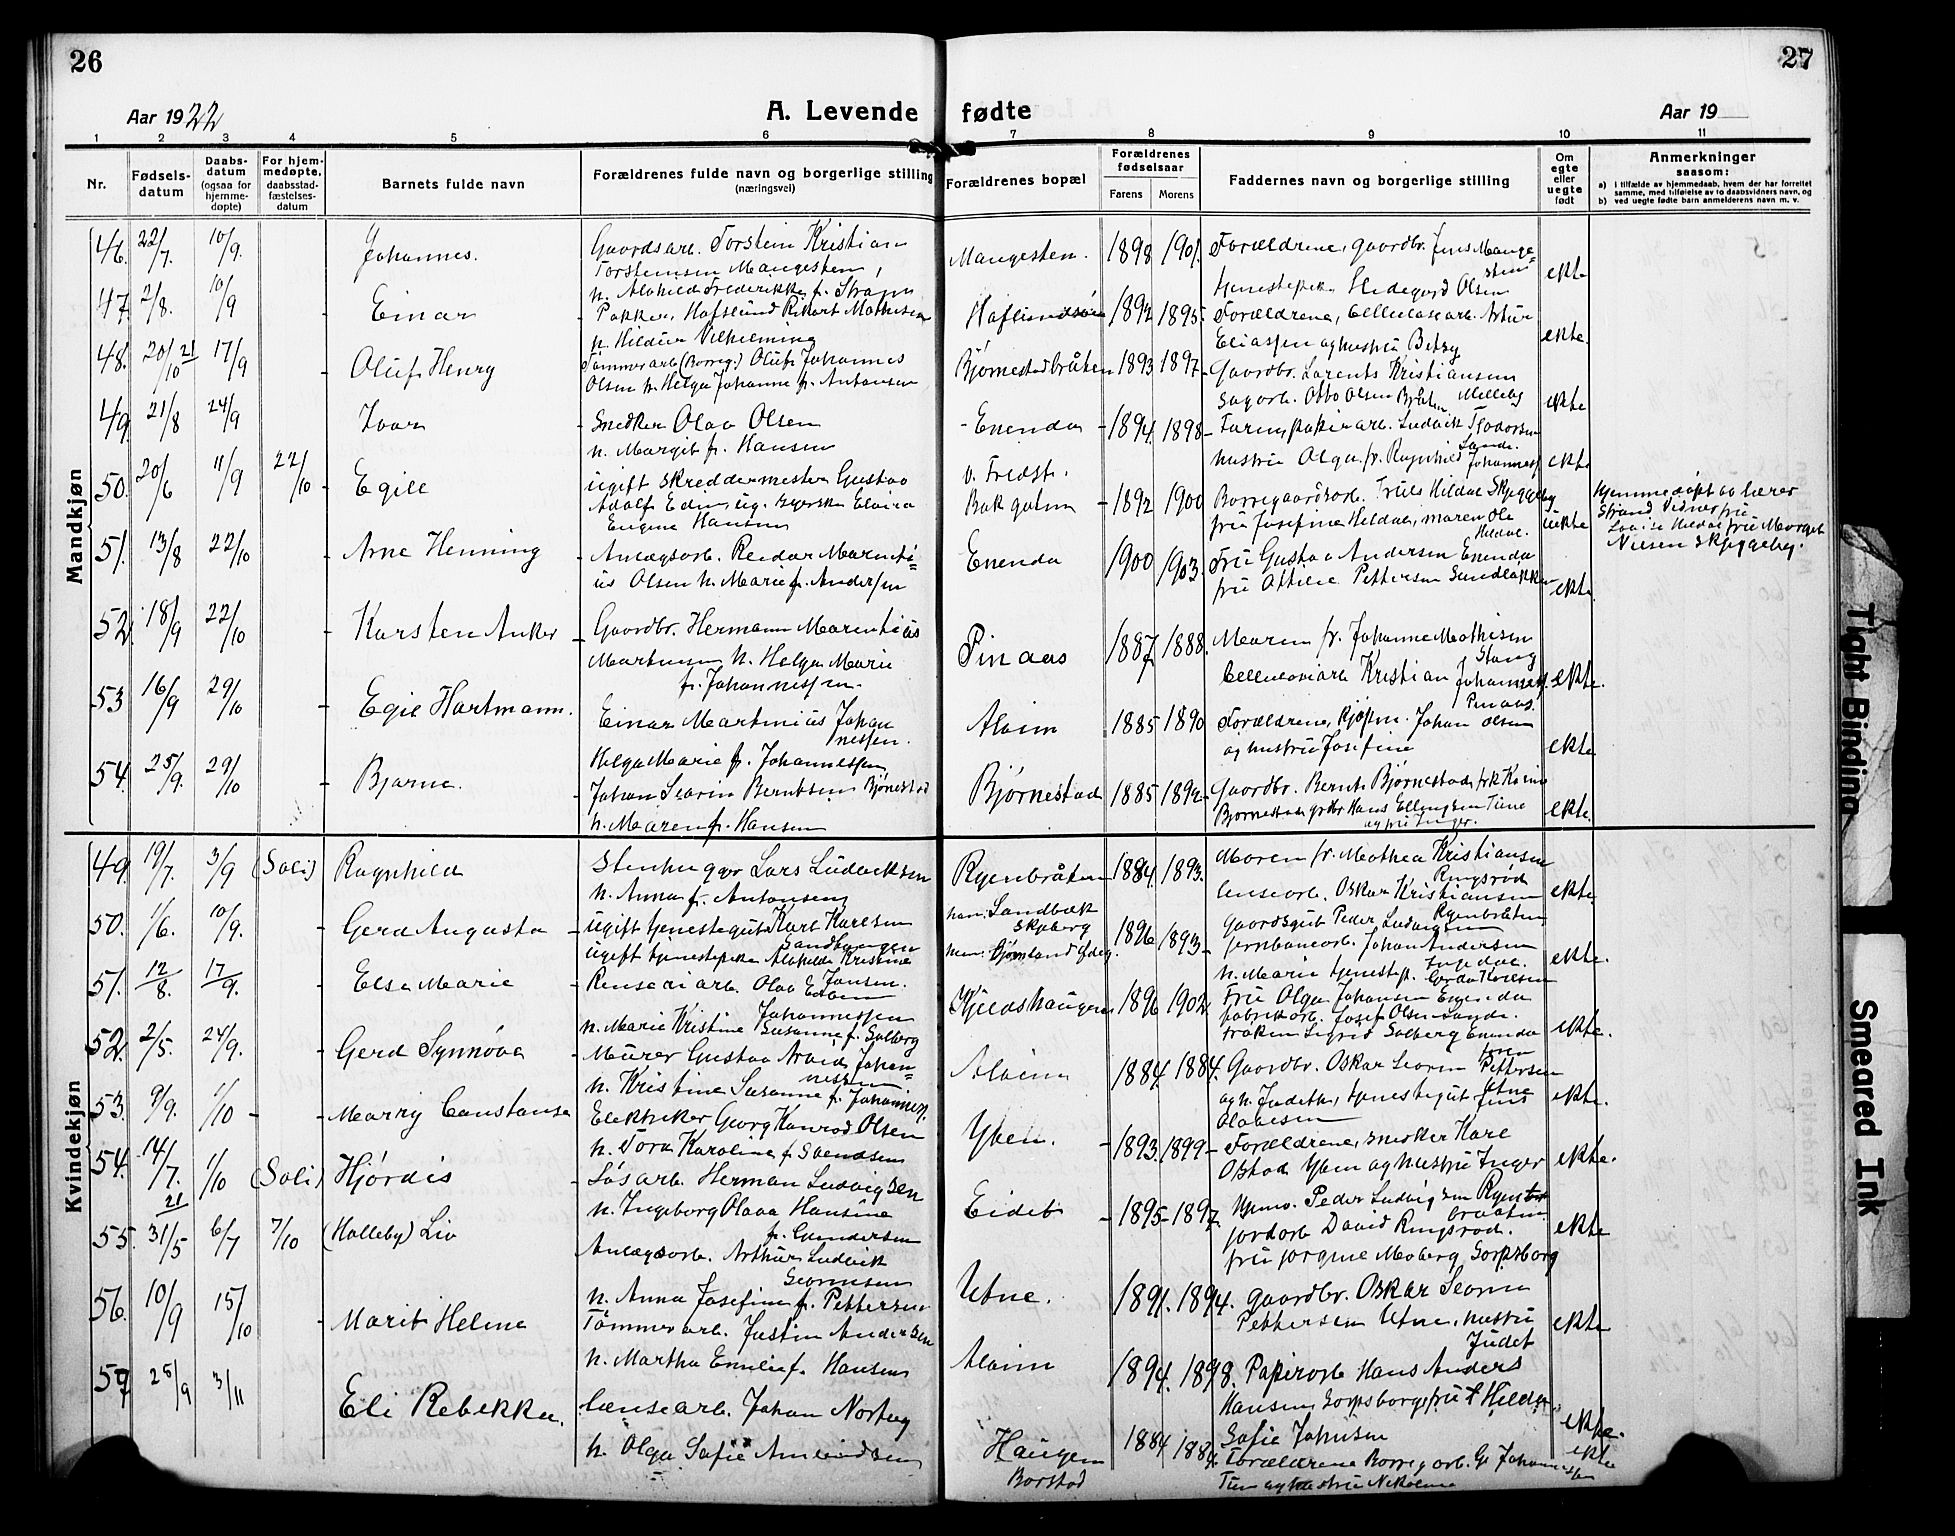 26
Aar 1922
A. Levende
1 2 3 4 5 6
Nr.
Fødsels-
datum
Daabs-
datum
(ogsaa for
hjemme-
døpte)
For hjem-
medøpte,
daabsstad-
fæstelses-
datum
Barnets fulde navn
Forældrenes fulde navn og borgerlige stilling
(næringsvei)
Mandkjøn
46. 22/7. 10/9. Johannes. Gaardsarb. Torstein Kristian
Torstensen Mangesten,
h. Alvhild Frederikke f. Strøm
47. 2/8. 10/9 Einar Pakker, Hafslund Rikart Mathisen
h. Hildur Vilhelmine
48. 20/10 21 17/9 Oluf Henry Tømmerarb (Borreg.) Oluf Johannes
Olsen h. Helga Johanne f. Antonsen
49. 21/8 24/9 Ivar Snedker Olav Olsen
h. Margit f. Hansen
50. 20/6 11/9 22/10 Egill ugift skreddermester Gustav
Adolf Edin ug. Elvira
Eugene Hansen
51. 13/8 22/10 Arne Henning Anlægsarb. Reidar Marenti=
us Olsen h. Marie f. Andersen
52. 18/9 22/10 Karsten Anker Gaardbr. Hermann Marentius
Martinsen h. Helga Marie
f. Johannessen.
53 16/9 29/10 Egil Hartmann. Einar Martinius Johan
nessen.
Helga Marie f. Johannessen
54. 25/9. 29/10 Bjarne. Johan Severin Berntsen Bjønestad
h. Maren f. Hansen
Kvindekjøn
49. 19/7. 3/9 (Soli) Ragnhild Stenhugger Lars Ludviksen
h. Anna f. Antonsen
50. 1/6. 10/9. Gerd Augusta ugift tjenestegut Karl Karlsen
Sandhaugen
ugift tjenestepike Alvhilde Kristine
Jansen.
51. 12/8. 17/9. Else Marie Renseriarb. Olav Edvin
Johannessen
h. Marie Kristine Susanne f. Solberg
52. 2/5. 24/9. Gerd Synnøva Murer Gustav Arvid Johan=
nessen
h. Kristine Susanne f. Johanness.
53. 9/9. 1/10 Marry Constanse Elektriker Georg Konrad Olsen
h. Tora Karoline f. Svendsen
54. 14/7. 21 1/10 (Soli) Hjørdis Løsarb. Herman Ludvigsen
h. Ingeborg Olava Hansine
f. Gundersen
55. 31/5 6/7 7/10 (Holleby) Liv Anlægsarb. Arthur Ludvik
Severinsen
h. Anna Josefine f. Pettersen
56. 10/9 15/10 Marit Helene Tømmerarb. Justin Andersen
h. Martha Emilie f. Hansen
57 25/9 3/11 Eli Rebekka. Lænsearb. Johan Norberg
h. Olga Sofie Amundsen
27
fødte
Aar 19
7 8 9 10 11
Forældrenes bopæl
Forældrenes
fødselsaar
Farens Morens
Faddernes navn og borgerlige stilling
Om
egte
eller
uegte
født
Anmerkninger
saasom:
a) i tilfælde av hjemmedaab, hvem der har forrettet
samme, med tilføielse av to daabsvidners navn, og
b) ved uegte fødte barn anmelderens navn m. v.
Mangesten. 1898 1901. Forældrene, gaardbr. Jens Mange=
sten
tjenestepike Hildegard Olsen ekte
Haflundsøen 1892 1895. Forældrene, Cellulosearb. Artur
Eliassen og hustru Betzy ekte.
Bjørnestadbråten 1893 1897 Gaardbr. Lorents Kristiansen
Sagarb. Otto Olsen ekte
Enenda 1894. 1898 papirarb. Ludvik Tjodorsen
Sande.
hustru Olga. fr. Ragnhild Johanness. ekte
v. Fredst.
Bakgaten 1892 1900 Borregaardsarb. Truls Hildal Skjeggeby
fru Josefine Hildal, maren Ole
Hildal. uekte
Hjemmedøpt av lærer
Strand Vidner fru
Lovise Hildal fru Margit
Nilsen Skjeggeby.
Enenda 1900 1903. Fru Gustava Andersen Enenda
fru Ottilie Pettersen Sundløkken ekte.
Pinaas 1887 1888. Maren fr. Johanne Mathisen
Stang
Cellulosearb Kristian Johanness.
Pinaas. ekte.
Alvim 1885 1890 Forældrene, Kjøpm. Johan Olsen
og hustru Josefine ekte
Bjørnestad 1885 1892 Gaardbr. Bernt Bjørnestad, frk Karine
Bjørnestad grdbr Hans Ellingsen Tune
og fru Inger. ekte.
Ryenbråten 1884. 1893. Moren fr. Mathea Kristiansen
Ringsrød
lensearb. Oskar Kristiansen
Ryenbråten ekte.
han: Sandbæk
Skjeberg 1896 1893 Gaardsgut Peder Ludvigsen
jernbanearb. Johan Andersen
Ingedal. ekte.
h. Marie tjenestep. Gerda Karlsen
Kjeldshaugen 1896 1902 Fru Olga Johansen Enenda
fabrikarb. Josef Olsen Sande.
frøken Sigrid Solberg Enenda ekte.
Alvim 1884 1884. Gaardbr. Oskar Severin Pettersen
Utne
og h. Judith, tjenestegut Jens
Olavesen ekte.
Yven. 1893. 1899 Forældrene, snekker Karl
Østad Yven og hustru Inger ekte.
Eidet 1895 1897. Peder Ludvigsen Ryen
braaten
jordarb David Ringsrød.
fru Jorgine Moberg Sarpsborg ekte
Utne. 1891. 1894. gaardbr. Oskar Severin
Pettersen Utne, hustru
Judet ekte
Alvim 1894. 1898. Papirarb Hans Anders
Hansen, Sarpsborg, fru Hildur
Sofie Johnsen ekte.
Haugen
Borstad 1884 1884 Forældrene Borregarb. G. Johannessen
Tune og hustru Nikoline ekte
Tight Binding
Smeared Ink